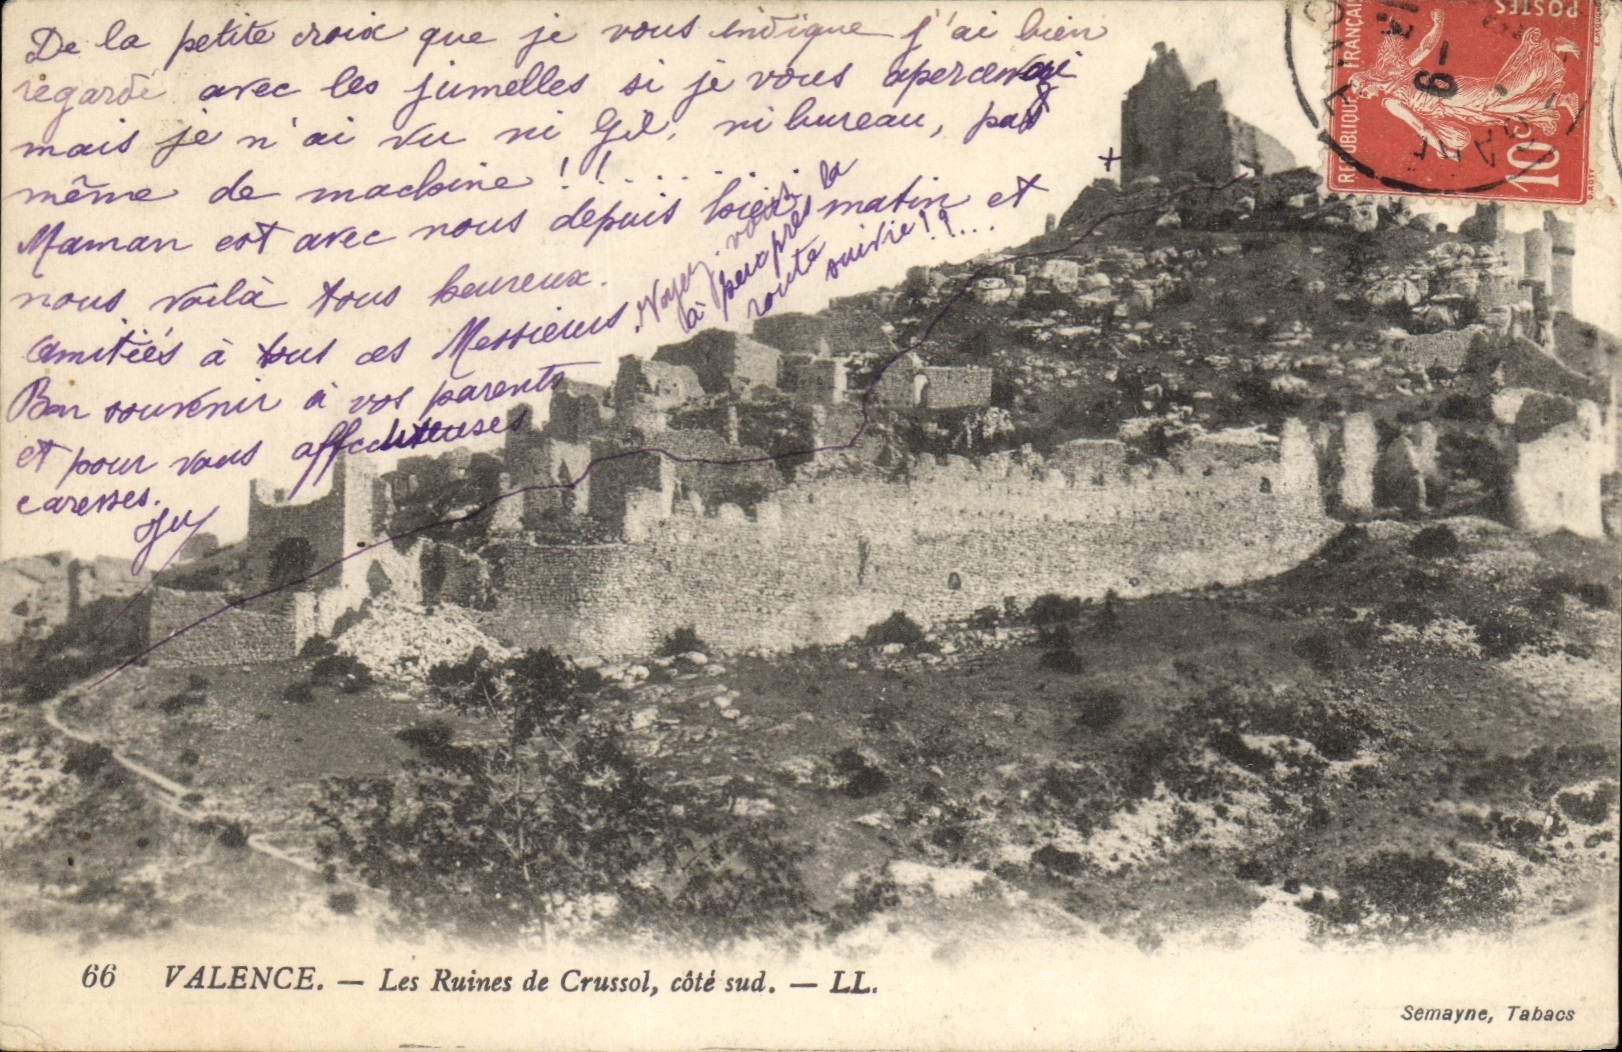 De la petite croix que je vous indique j'ai bien
regardé avec les jumelles si je vous apercevai
mais je n'ai vu ni Gil, ni bureau, pas
même de machine ! !
Maman est avec nous depuis hier matin et
nous voilà tous heureux.
Amitiés à tous ces Messieurs
Bon souvenir à vos parents
et pour vous affectueuses
caresses.
Voyez
à peu près la
route suivie !?...
+
RÉPUBLIQUE FRANÇAISE
POSTES
10
66 VALENCE. — Les Ruines de Crussol, côté sud. — LL.
Semayne, Tabacs